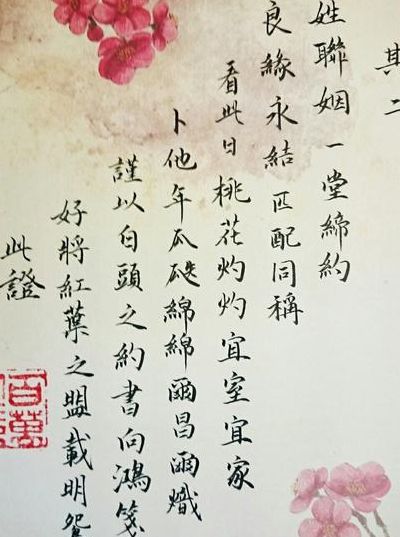 其二
姓聯姻一堂締約
良緣永結匹配同稱
看此日桃花灼灼宜室宜家
卜他年瓜瓞綿綿爾昌爾熾
謹以白頭之約書向鴻箋
好將紅葉之盟載明鴛
此證
百萬